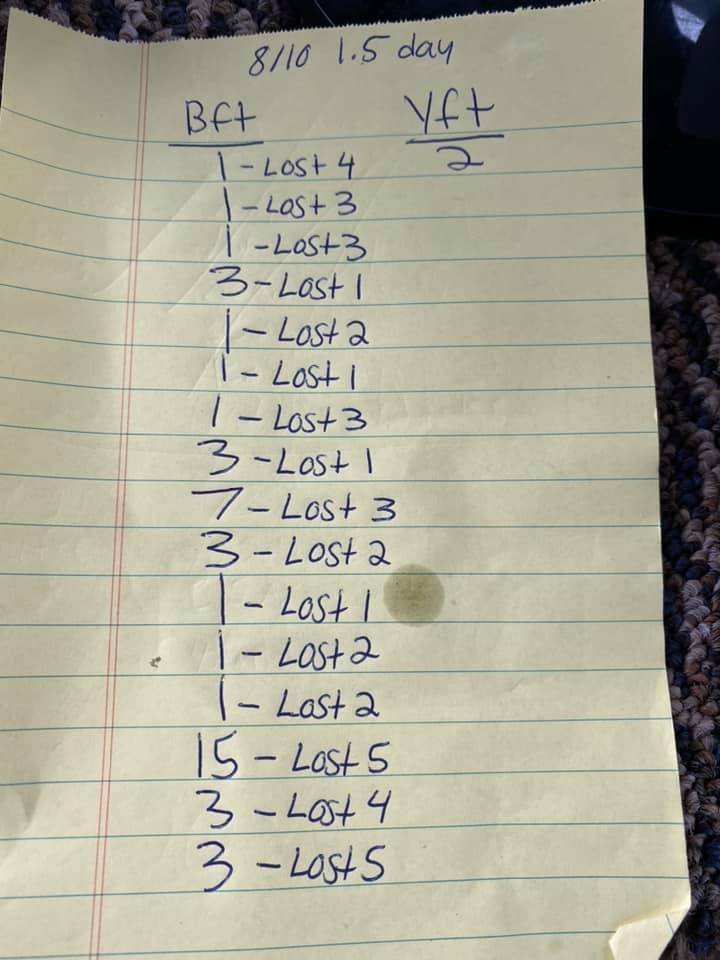 8/10 1.5 day
Bft Yft
1 - Lost 4 2
1 - Lost 3
1 - Lost 3
3 - Lost 1
1 - Lost 2
1 - Lost 1
1 - Lost 3
3 - Lost 1
7 - Lost 3
3 - Lost 2
1 - Lost 1
1 - Lost 2
1 - Lost 2
15 - Lost 5
3 - Lost 4
3 - Lost 5